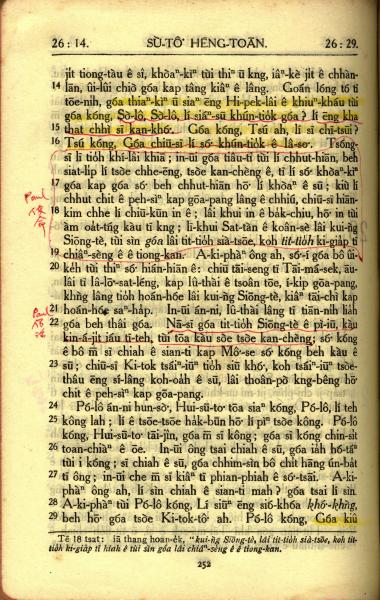 26 : 14. SÙ-TÔ͘ HÊNG-TOĀN. 26 : 29.
ji̍t tiong-tàu ê sî, khòaⁿ-kìⁿ tùi thiⁿ ū kng, iâⁿ-kè ji̍t ê chhàn-
14 lān, ûi-lûi chiò góa kap tâng kiâⁿ ê lâng. Goán lóng tó tī
tōe-nih, góa thiaⁿ-kìⁿ ū siaⁿ ēng Hi-pek-lâi ê khiuⁿ-kháu tùi
góa kóng, Sò-lô, Sò-lô, lí siáⁿ-sū khún-tio̍k góa? lí ēng kha
15 that chhì sī kan-khó͘. Góa kóng, Tsú ah, lí sī chī-tsūi?
16 Tsú kóng, Góa chiū-sī lí só͘ khún-tio̍k ê Iâ-so͘. Tsóng-
sī lí tio̍h khí-lâi khiā; in-ūi góa tiâu-tī tùi lí chhut-hiān, beh
siat-li̍p lí tsòe chhe-ēng, tsòe kan-chèng ê, tī lí só͘ khòaⁿ-kìⁿ
17 góa kap góa só͘ beh chhut-hiān hō͘ lí khòaⁿ ê sū; kiù lí
chhut chit ê peh-sìⁿ kap gōa-pang lâng ê chhiú, chiū-sī hiān-
18 kim chhe lí chiū-kūn in ê; lâi khui in ê ba̍k-chiu, hō͘ in tùi
àm oa̍t-tńg kàu tī kng; lī-khui Sat-tàn ê koân-sè lâi kui-ńg
Siōng-tè, tùi sìn góa lâi tit-tio̍h sià-tsōe, koh tit-tio̍h ki-gia̍p tī
19 chiâⁿ-sèng ê ê tiong-kan. A-ki-phàⁿ ông ah, só͘-í góa bô ûi-
20 ke̍h tùi thiⁿ só͘ hián-hiān ê: chiū tāi-seng tī Tāi-má-sek, āu-
lâi tī Iâ-lō͘-sat-léng, kap Iû-thài ê tsoân tōe, í-ki̍p gōa-pang,
khǹg lâng tio̍h hoán-hóe lâi kui-ńg Siōng-tè, kiâⁿ tāi-chì kap
21 hoán-hóe saⁿ-ha̍p. In-ūi án-ni, Iû-thài lâng tī tiān-nih lia̍h
22 góa beh thâi góa. Nā-sī góa tit-tio̍h Siōng-tè ê pì-iū, kàu
kin-á-ji̍t iáu tī-teh, tùi tōa kàu sòe tsòe kan-chèng; só͘ kóng
ê bô m̄ sī chiah ê sian-ti kap Mô͘-se só͘ kóng beh kàu ê
23 sū; chiū-sī Ki-tok tsāi-iūⁿ tio̍h siū khó͘, koh tsāi-iūⁿ tsòe-
thâu ēng sí-lâng koh-oa̍h ê sū, lâi thoân-pò kng-bêng hō͘
chit ê peh-sìⁿ kap gōa-pang.
24 Pó-lô án-ni hun-sò͘, Hui-sū-to͘ tōa siaⁿ kóng, Pó-lô, lí teh
25 kông lah; lí ê tsōe-tsōe ha̍k-būn hō͘ lí pìⁿ tsòe kông. Pó-lô
kóng, Hui-sū-to͘ tāi-jîn, góa m̄ sī kông; góa sī kóng chin-si̍t
26 toan-chiàⁿ ê ōe. In-ūi ông tsai chiah ê sū, góa iā hó-táⁿ
tùi i kóng; sī chiah ê sū, góa chhim-sìn bô chi̍t hāng ún-ba̍t
27 tī ông; in-ūi che m̄ sī kiâⁿ tī phian-phiah ê só͘-tsāi. A-ki-
phàⁿ ông ah, lí sìn chiah ê sian-ti mah? góa tsai lí sìn.
28 A-ki-phàⁿ tùi Pó-lô kóng, Lí siūⁿ ēng sió-khóa khó͘-khǹg,
29 beh hō͘ góa tsòe Ki-tok-tô͘ ah. Pó-lô kóng, Góa kiû
Tē 18 tsat: iā thang hoan-e̍k, “kui-ńg Siōng-tè, lâi tit-tio̍h sià-tsōe, koh tit-
tio̍h ki-gia̍p tī hiah ê tùi sìn góa lâi chiâⁿ-sèng ê ê tiong-kan.
252